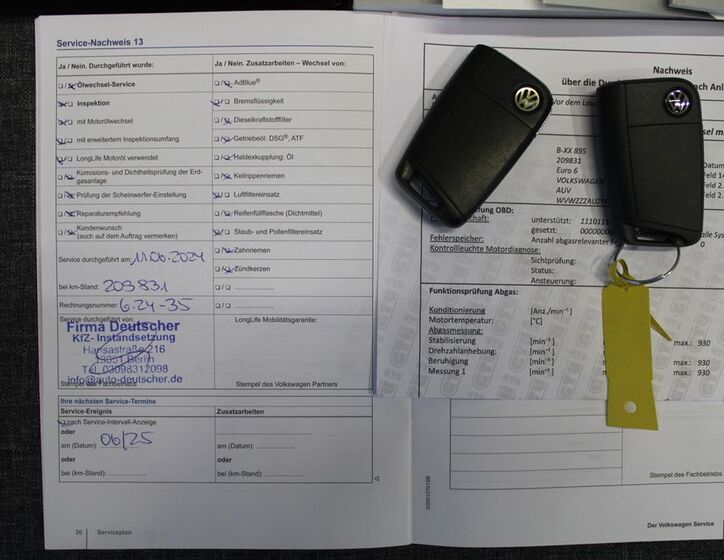 Service-Nachweis 13
Ja / Nein. Durchgeführt wurde:
Ja / Nein. Zusatzarbeiten – Wechsel von:
Ölwechsel-Service
AdBlue®
Inspektion
Bremsflüssigkeit
mit Motorölwechsel
Dieselkraftstofffilter
mit erweitertem Inspektionsumfang
Getriebeöl: DSG®, ATF
LongLife Motoröl verwendet
Haldexkupplung: Öl
Korrosions- und Dichtheitsprüfung der Erd-
gasanlage
Keilrippenriemen
Prüfung der Scheinwerfer-Einstellung
Luftfiltereinsatz
Reparaturempfehlung
Reifenfüllflasche (Dichtmittel)
Kundenwunsch
(auch auf dem Auftrag vermerken)
Staub- und Pollenfiltereinsatz
Service durchgeführt am: 11.06.2024
Zahnriemen
Zündkerzen
bei km-Stand: 209831
Rechnungsnummer: 6.24-35
Service durchgeführt von:
LongLife Mobilitätsgarantie:
Firma Deutscher
KfZ- Instandsetzung
Hansastraße 216
13051 Berlin
Tel. 03098312098
info@auto-deutscher.de
Stempel des Fachbetriebs
Stempel des Volkswagen Partners
Ihre nächsten Service-Termine
Service-Ereignis
Zusatzarbeiten
nach Service-Intervall-Anzeige
oder
oder
am (Datum): 06/25
am (Datum):
oder
oder
bei (km-Stand):
bei (km-Stand):
36
Serviceplan
Nachweis
über die Du
ach Anl
Vor dem Lase
B-XX 895
209831
Euro 6
VOLKSWAGEN
AUV
WVWZZZAUZFP
Datum
Feld 14
Feld 2.
Feld 2.
fung OBD:
unterstützt: 1110111
gesetzt: 000000000
alle Sys
Fehlerspeicher:
Anzahl abgasrelevanter F
0
Kontrollleuchte Motordiagnose:
Sichtprüfung:
Status:
Ansteuerung:
Funktionsprüfung Abgas:
Konditionierung
[Anz./min⁻¹]
Motortemperatur:
[°C]
Abgasmessung:
Stabilisierung
[min⁻¹]
max.: 930
Drehzahlanhebung:
[min⁻¹]
Beruhigung
[min⁻¹]
max.: 930
Messung 1
[min⁻¹]
max.: 930
Stempel des Fachbetriebs
Der Volkswagen Service